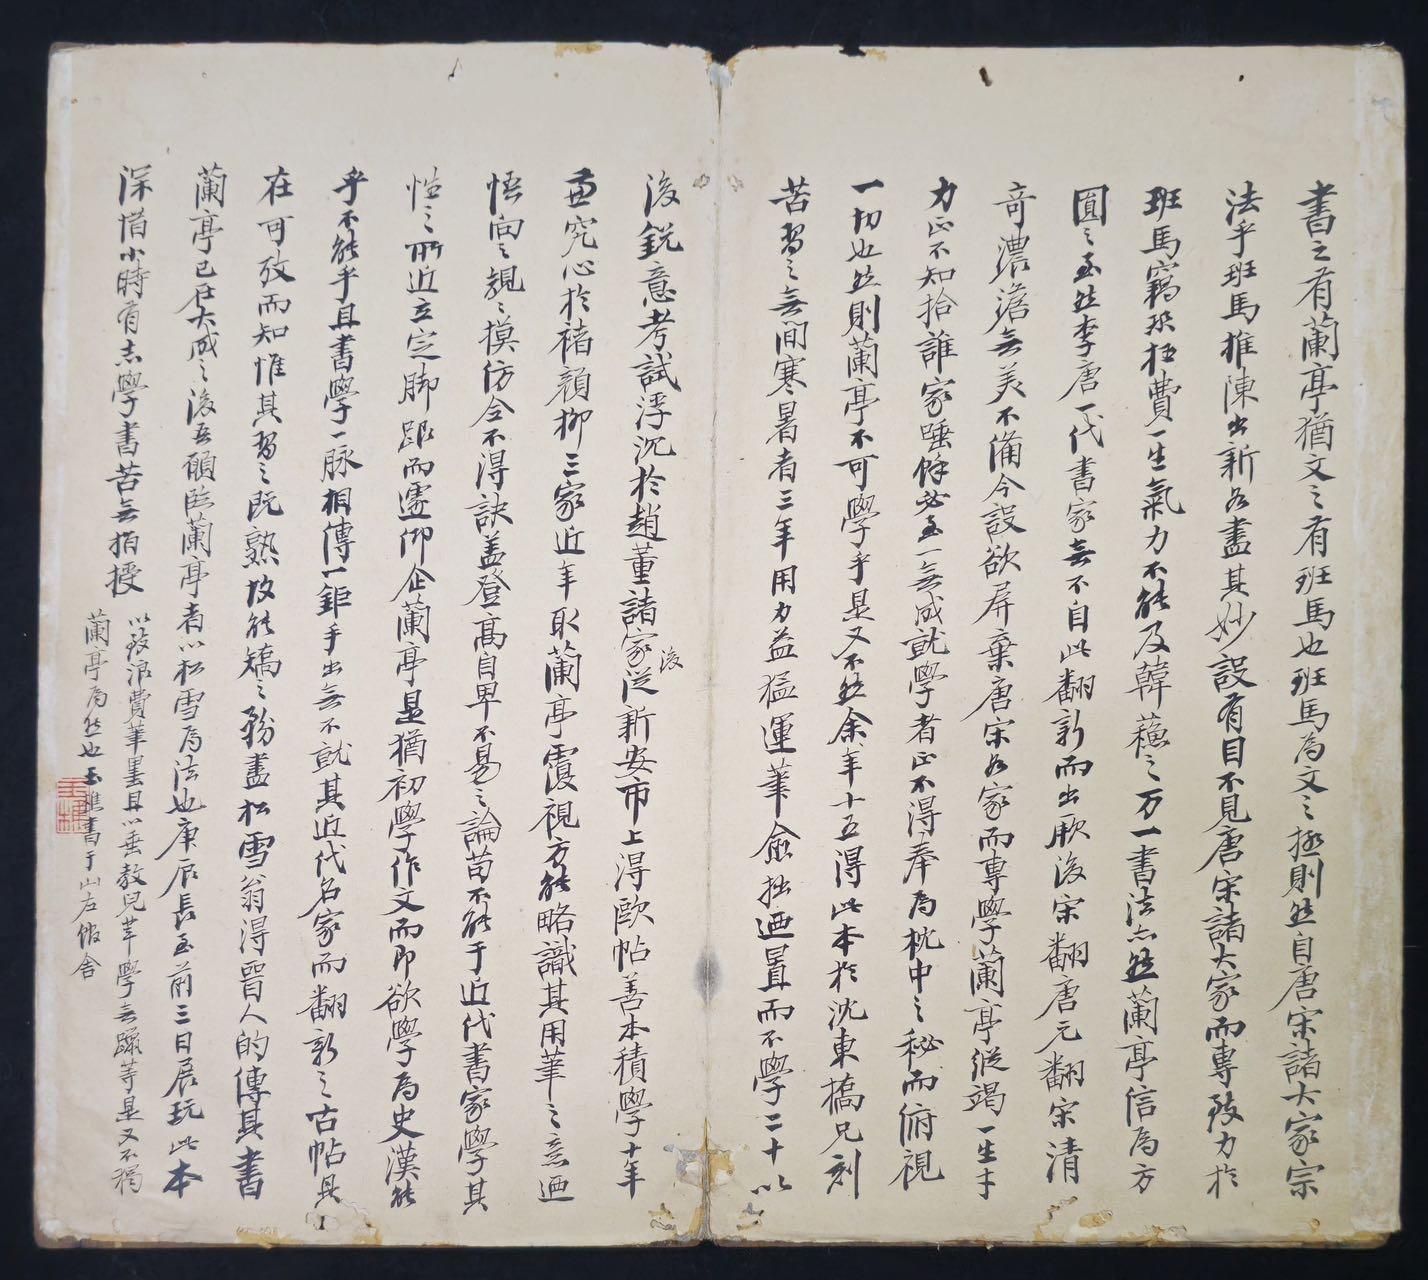 書之有蘭亭猶文之有班馬也班馬為文之極則然自唐宋諸大家宗
法乎班馬推陳出新各盡其妙設有目不見唐宋諸大家而專致力於
班馬竊恐枉費一生氣力不能及韓蘇之万一書法亦然蘭亭信為方
圓之至然李唐一代書家無不自此翻新而出厥後宋翻唐元翻宋清
奇濃澹無美不備今設欲屏棄唐宋各家而專學蘭亭縱竭一生才
力正不知拾誰家唾餘必至一無成就學者正不得奉為枕中之秘而俯視
一切也然則蘭亭不可學乎是又不然余年十五得此本於沈東橋兄刻
苦習之無間寒暑者三年用力益猛運筆益拙迺置而不學二十以
後銳意考試浮沉於趙董諸家後從新安市上得歐帖善本積學十年
兼究心於褚顏柳三家近年取蘭亭覆視方能略識其用筆之意迺
悟向之規之摸仿全不得訣蓋登高自卑不易之論苟不能于近代書家學其
性之所近立定脚跟而遽仰企蘭亭是猶初學作文而即欲學為史漢能
乎不能乎且書學一脉相傳一鉅手出無不就其近代名家而翻新之古帖具
在可攷而知惟其習之既熟故能矯之務盡松雪翁得晉人的傳其書
蘭亭已在大成之後吾願臨蘭亭者以松雪為法也庚辰長至前三日展玩此本
深惜小時有志學書苦無指授
以致浪費筆墨且以垂教兒輩學無躐等是又不獨
蘭亭為然也玉樵書于山左館舍